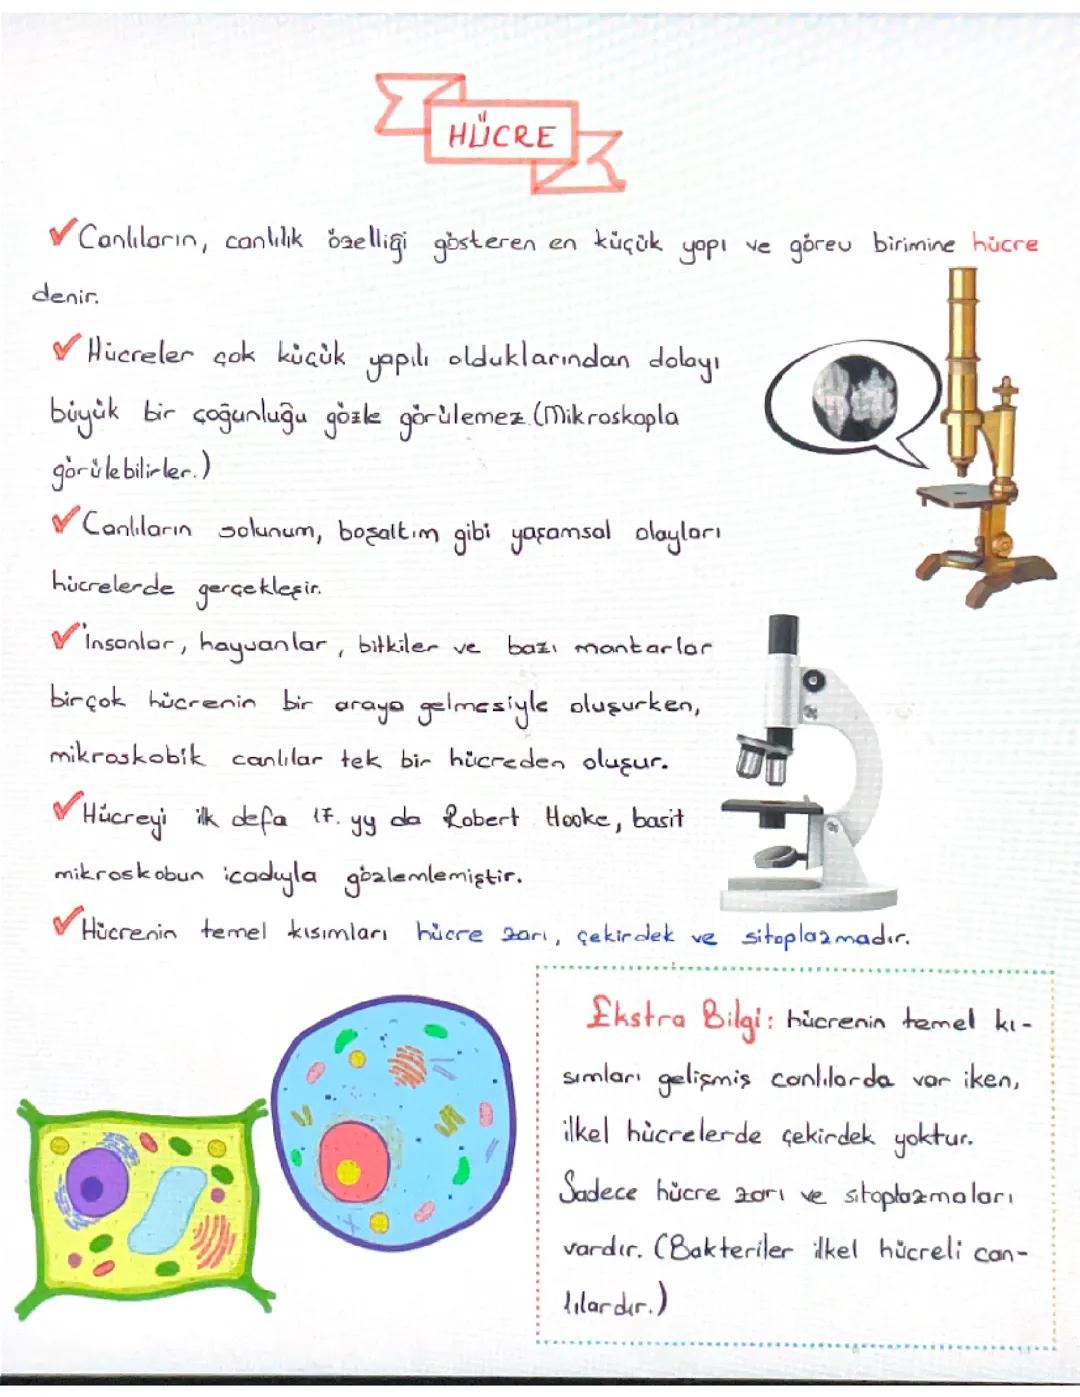 HÜCRE
Canlıların, canlılık özelliği gösteren en küçük yapı ve görev birimine hücre
denir.
Hücreler çok küçük yapılı olduklarından dolayı
büyük bir çoğunluğu gözle görülemez. (Mikroskopla
görülebilirler.)
Canlıların solunum, boşaltım gibi yaşamsal olayları
hücrelerde gerçekleşir.
İnsanlar, hayvanlar, bitkiler ve bazı mantarlar
birçok hücrenin bir araya gelmesiyle oluşurken,
mikroskobik canlılar tek bir hücreden oluşur.
Hücreyi ilk defa 17. yy da Robert Hooke, basit
mikroskobun icadıyla gözlemlemiştir.
Hücrenin temel kısımları hücre zarı, çekirdek ve sitoplazmadır.
Ekstra Bilgi: hücrenin temel kı-
sımları gelişmiş canlılarda var iken,
ilkel hücrelerde çekirdek yoktur.
Sadece hücre zarı ve sitoplazmaları
vardır. (Bakteriler ilkel hücreli can-
lılardır.)